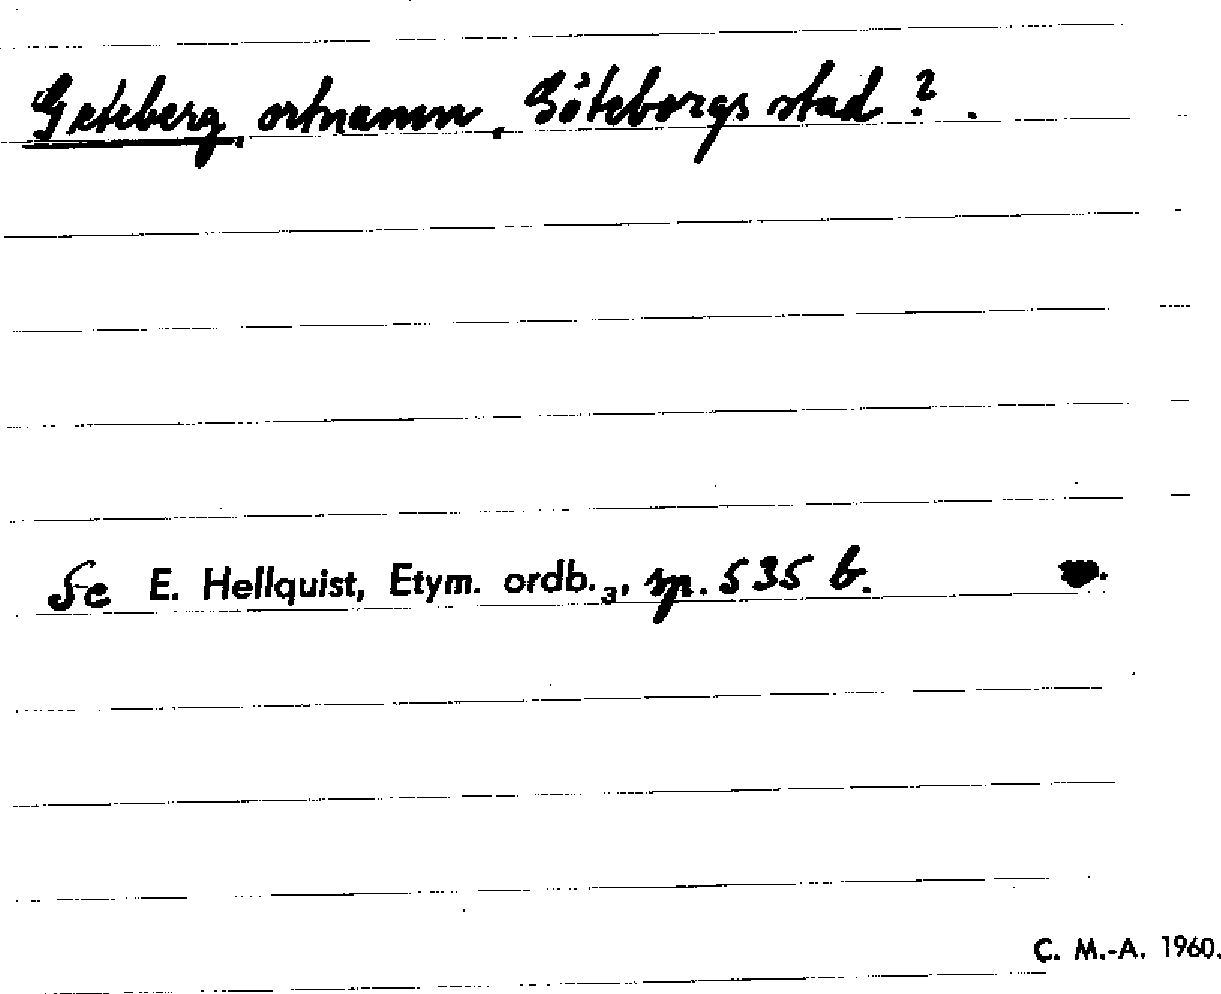 Geteberg, ortnamn, Göteborgs stad ? .
Se E. Hellquist, Etym. ordb.₃, sp. 535 b.
C. M.-A. 1960.